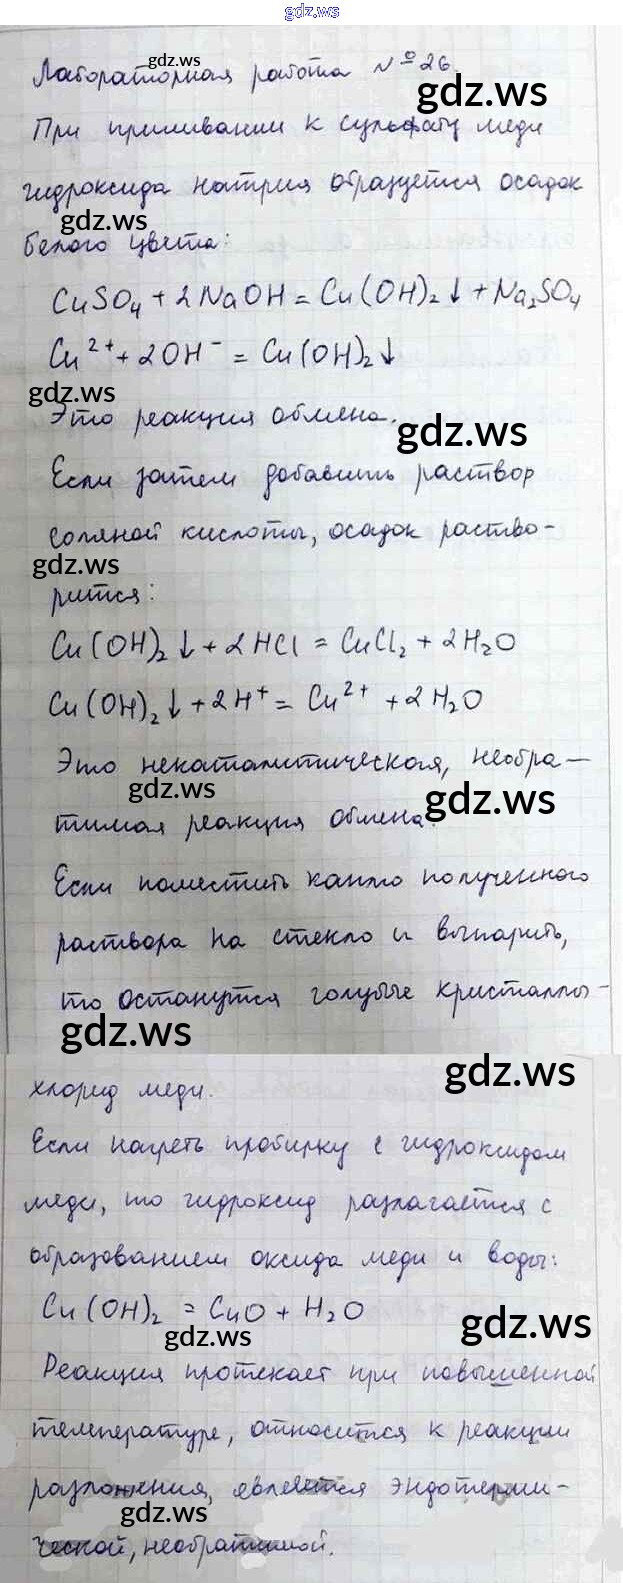 gdz.ws
gdz.ws
Лабораторная работа №26.
gdz.ws
При приливании к сульфату меди
гидроксида натрия образуется осадок
gdz.ws
белого цвета:
CuSO₄ + 2NaOH = Cu(OH)₂↓ + Na₂SO₄
Cu²⁺ + 2OH⁻ = Cu(OH)₂↓
gdz.ws
Это реакция обмена.
gdz.ws
Если затем добавить раствор
соляной кислоты, осадок раство-
gdz.ws
рится:
Cu(OH)₂↓ + 2HCl = CuCl₂ + 2H₂O
Cu(OH)₂↓ + 2H⁺ = Cu²⁺ + 2H₂O
Это некаталитическая, необра-
gdz.ws
gdz.ws
тимая реакция обмена.
Если поместить каплю полученного
раствора на стекло и выпарить,
то останутся голубые кристаллы-
gdz.ws
gdz.ws
хлорид меди.
Если нагреть пробирку с гидроксидом
меди, то гидроксид разлагается с
образованием оксида меди и воды:
Cu(OH)₂ = CuO + H₂O
gdz.ws
gdz.ws
Реакция протекает при повышенной
температуре, относится к реакции
разложения, является эндотерми-
gdz.ws
ческой, необратимой.
gdz.ws